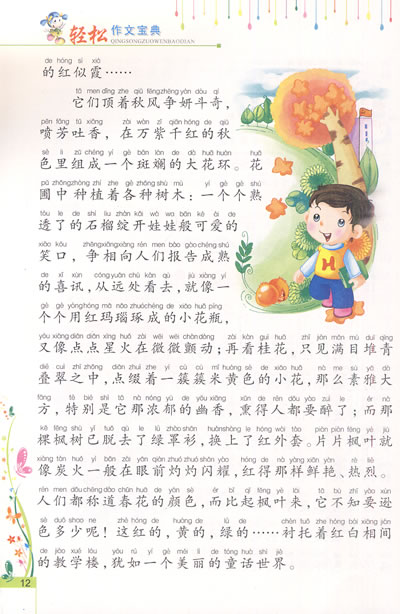 轻松作文宝典
QINGSONGZUOWENBAODIAN
de hóng sì xiá
的红似霞……
tā men dǐng zhe qiū fēng zhēng yán dòu qí
它们顶着秋风争妍斗奇，
pēn fāng tǔ xiāng zài wàn zǐ qiān hóng de qiū
喷芳吐香，在万紫千红的秋
sè lǐ zǔ chéng yī gè bān lán de dà huā huán huā
色里组成一个斑斓的大花环。花
pǔ zhōng zhòng zhí zhe gè zhǒng shù mù yí gè gè shú
圃中种植着各种树木：一个个熟
tòu le de shí liu zhàn kāi wá wa bān kě ài de
透了的石榴绽开娃娃般可爱的
xiào kǒu zhēng xiāng xiàng rén men bào gào chéng shú
笑口，争相向人们报告成熟
de xǐ xùn cóng yuǎn chù kàn qù jiù xiàng yí
的喜讯，从远处看去，就像一
gè gè yòng hóng mǎ nǎo zhuó chéng de xiǎo huā píng
个个用红玛瑙琢成的小花瓶，
yòu xiàng diǎn diǎn xīng huǒ zài wēi wēi chàn dòng zài kàn guì huā zhǐ jiàn mǎn mù duī qīng
又像点点星火在微微颤动；再看桂花，只见满目堆青
dié cuì zhī zhōng diǎn zhuì zhe yí cù cù mǐ huáng sè de xiǎo huā nà me sù yǎ dà
叠翠之中，点缀着一簇簇米黄色的小花，那么素雅大
fāng tè bié shì tā nà nóng yù de yōu xiāng xūn de rén dōu yào zuì le ér nà
方，特别是它那浓郁的幽香，熏得人都要醉了；而那
kē fēng shù yǐ tuō qù le lǜ zhào shān huàn shàng le hóng wài tào piàn piàn fēng yè jiù
棵枫树已脱去了绿罩衫，换上了红外套。片片枫叶就
xiàng tàn huǒ yì bān zài yǎn qián zhuó zhuó shǎn yào hóng de nà yàng xiān yàn rè liè
像炭火一般在眼前灼灼闪耀，红得那样鲜艳、热烈。
rén men dōu chēng dào chūn huā de yán sè ér bǐ qǐ fēng yè lái tā bù zhī yào xùn
人们都称道春花的颜色，而比起枫叶来，它不知要逊
sè duō shao ne zhè hóng de huáng de lǜ de chèn tuō zhe hóng bái xiāng jiàn
色多少呢！这红的，黄的，绿的……衬托着红白相间
de jiào xué lóu yóu rú yí gè měi lì de tóng huà shì jiè
的教学楼，犹如一个美丽的童话世界。
H
12